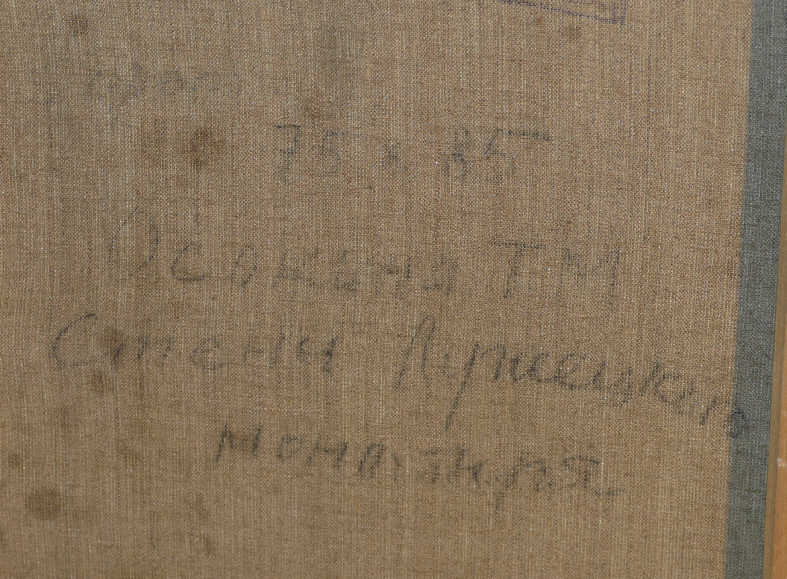 75 x 85
Осокина ТМ
Стены Лужецкого
монастыря